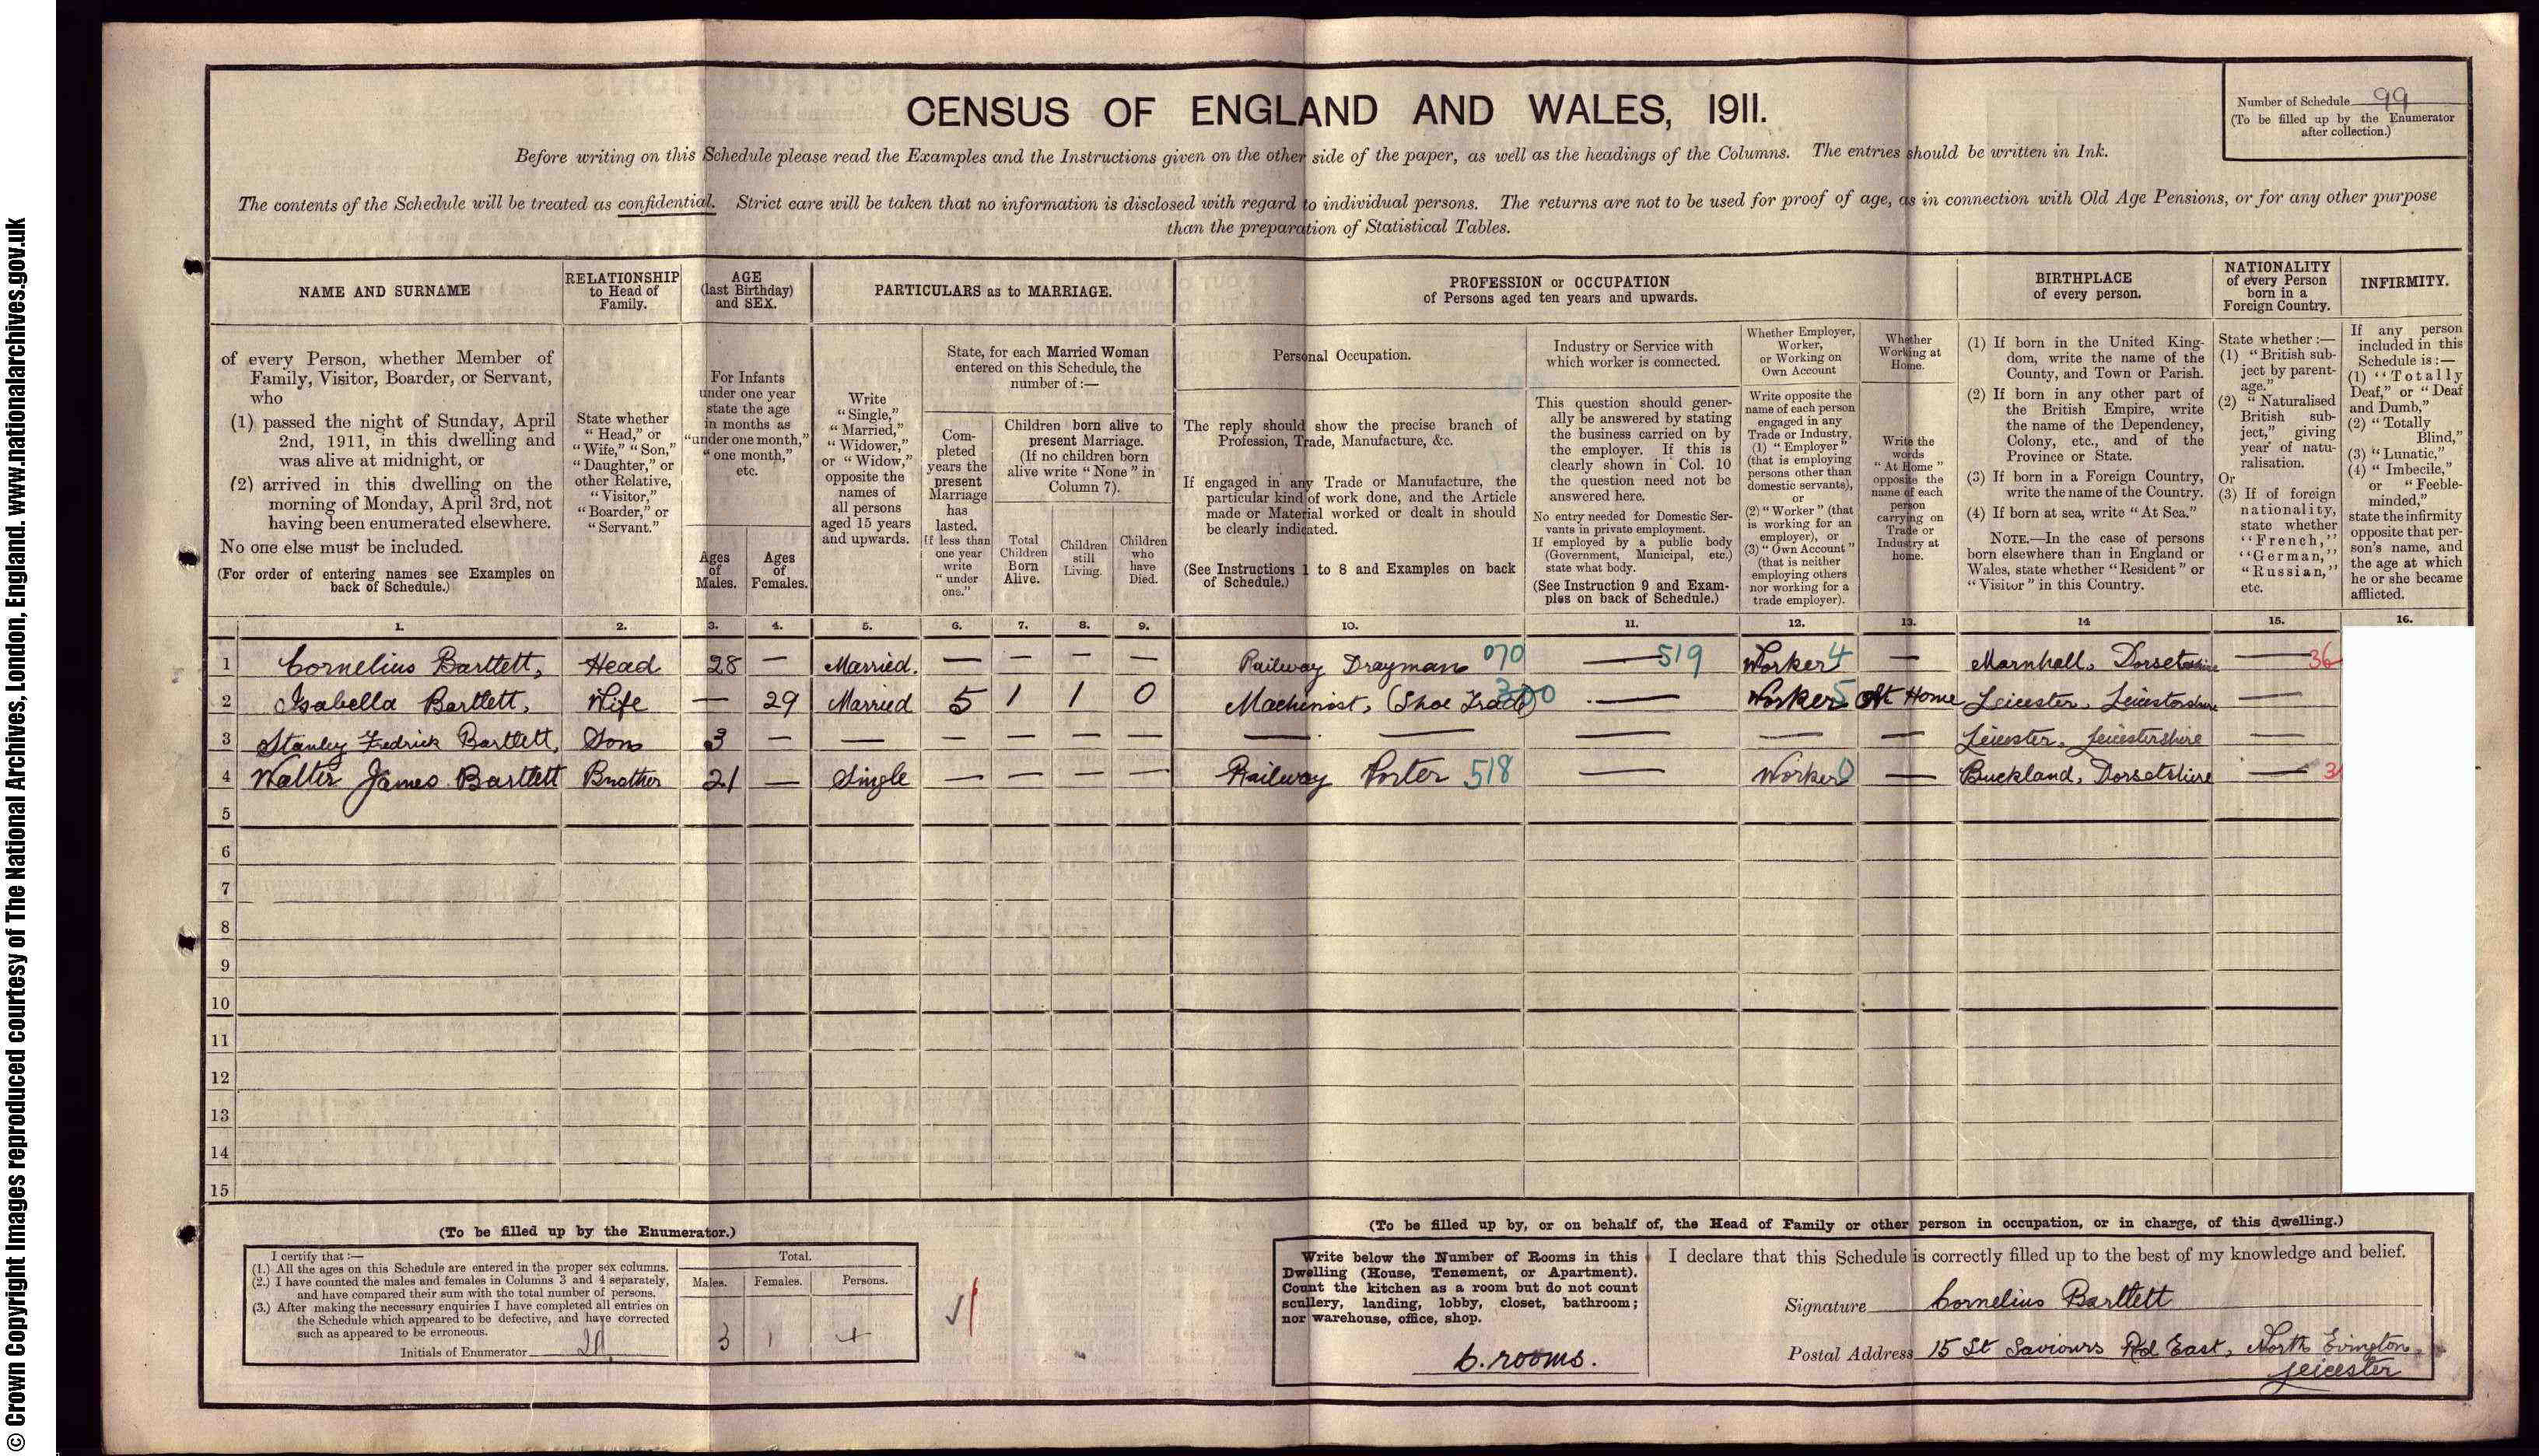 © Crown Copyright Images reproduced courtesy of The National Archives, London, England. www.nationalarchives.gov.uk
CENSUS OF ENGLAND AND WALES, 1911.
Number of Schedule 99
(To be filled up by the Enumerator
after collection.)
Before writing on this Schedule please read the Examples and the Instructions given on the other side of the paper, as well as the headings of the Columns. The entries should be written in Ink.
The contents of the Schedule will be treated as confidential. Strict care will be taken that no information is disclosed with regard to individual persons. The returns are not to be used for proof of age, as in connection with Old Age Pensions, or for any other purpose
than the preparation of Statistical Tables.
NAME AND SURNAME
of every Person, whether Member of
Family, Visitor, Boarder, or Servant,
who
(1) passed the night of Sunday, April
2nd, 1911, in this dwelling and
was alive at midnight, or
(2) arrived in this dwelling on the
morning of Monday, April 3rd, not
having been enumerated elsewhere.
No one else must be included.
(For order of entering names see Examples on
back of Schedule.)
RELATIONSHIP
to Head of
Family.
State whether
"Head," or
"Wife," "Son,"
"Daughter," or
other Relative,
"Visitor,"
"Boarder," or
"Servant."
AGE
(last Birthday)
and SEX.
For Infants
under one year
state the age
in months as
"under one month,"
"one month,"
etc.
Ages
of
Males.
Ages
of
Females.
PARTICULARS as to MARRIAGE.
Write
"Single,"
"Married,"
"Widower,"
or "Widow,"
opposite the
names of
all persons
aged 15 years
and upwards.
State, for each Married Woman
entered on this Schedule, the
number of :—
Com-
pleted
years the
present
Marriage
has
lasted.
If less than
one year
write
"under
one."
Children born alive to
present Marriage.
(If no children born
alive write "None" in
Column 7).
Total
Children
Born
Alive.
Children
still
Living.
Children
who
have
Died.
PROFESSION or OCCUPATION
of Persons aged ten years and upwards.
Personal Occupation.
The reply should show the precise branch of
Profession, Trade, Manufacture, &c.
If engaged in any Trade or Manufacture, the
particular kind of work done, and the Article
made or Material worked or dealt in should
be clearly indicated.
(See Instructions 1 to 8 and Examples on back
of Schedule.)
Industry or Service with
which worker is connected.
This question should gener-
ally be answered by stating
the business carried on by
the employer. If this is
clearly shown in Col. 10
the question need not be
answered here.
No entry needed for Domestic Ser-
vants in private employment.
If employed by a public body
(Government, Municipal, etc.)
state what body.
(See Instruction 9 and Exam-
ples on back of Schedule.)
Whether Employer,
Worker,
or Working on
Own Account
Write opposite the
name of each person
engaged in any
Trade or Industry,
(1) "Employer"
(that is employing
persons other than
domestic servants),
or
(2) "Worker" (that
is working for an
employer), or
(3) "Own Account"
(that is neither
employing others
nor working for a
trade employer).
Whether
Working at
Home.
Write the
words
"At Home"
opposite the
name of each
person
carrying on
Trade or
Industry at
home.
BIRTHPLACE
of every person.
(1) If born in the United King-
dom, write the name of the
County, and Town or Parish.
(2) If born in any other part of
the British Empire, write
the name of the Dependency,
Colony, etc., and of the
Province or State.
(3) If born in a Foreign Country,
write the name of the Country.
(4) If born at sea, write "At Sea."
NOTE.—In the case of persons
born elsewhere than in England or
Wales, state whether "Resident" or
"Visitor" in this Country.
NATIONALITY
of every Person
born in a
Foreign Country.
State whether :—
(1) "British sub-
ject by parent-
age."
(2) "Naturalised
British sub-
ject," giving
year of natu-
ralisation.
Or
(3) If of foreign
nationality,
state whether
"French,"
"German,"
"Russian,"
etc.
INFIRMITY.
If any person
included in this
Schedule is :—
(1) "Totally
Deaf," or "Deaf
and Dumb,"
(2) "Totally
Blind,"
(3) "Lunatic,"
(4) "Imbecile,"
or "Feeble-
minded,"
state the infirmity
opposite that per-
son's name, and
the age at which
he or she became
afflicted.
1. 2. 3. 4. 5. 6. 7. 8. 9. 10. 11. 12. 13. 14 15. 16.
1 Cornelius Bartlett, Head 28 — Married. — — — — Railway Drayman 070 — 519 Worker 4 — Marnhall, Dorsetshire — 36
2 Isabella Bartlett, Wife — 29 Married 5 1 1 0 Machinist, (Shoe Trade) — Worker 5 At Home Leicester, Leicestershire —
3 Stanley Fredrick Bartlett, Son 3 — — — — — — — — — — — Leicester, Leicestershire —
4 Walter James Bartlett Brother 21 — Single — — — — Railway Porter 518 — Worker 0 — Buckland, Dorsetshire — 3
5
6
7
8
9
10
11
12
13
14
15
(To be filled up by the Enumerator.)
I certify that :—
(1.) All the ages on this Schedule are entered in the proper sex columns.
(2.) I have counted the males and females in Columns 3 and 4 separately,
and have compared their sum with the total number of persons.
(3.) After making the necessary enquiries I have completed all entries on
the Schedule which appeared to be defective, and have corrected
such as appeared to be erroneous.
Initials of Enumerator
Total.
Males. Females. Persons.
3 1 4
(To be filled up by, or on behalf of, the Head of Family or other person in occupation, or in charge, of this dwelling.)
Write below the Number of Rooms in this
Dwelling (House, Tenement, or Apartment).
Count the kitchen as a room but do not count
scullery, landing, lobby, closet, bathroom;
nor warehouse, office, shop.
6. rooms.
I declare that this Schedule is correctly filled up to the best of my knowledge and belief.
Signature Cornelius Bartlett
Postal Address 15 St Saviours Rd East, North Evington,
Leicester